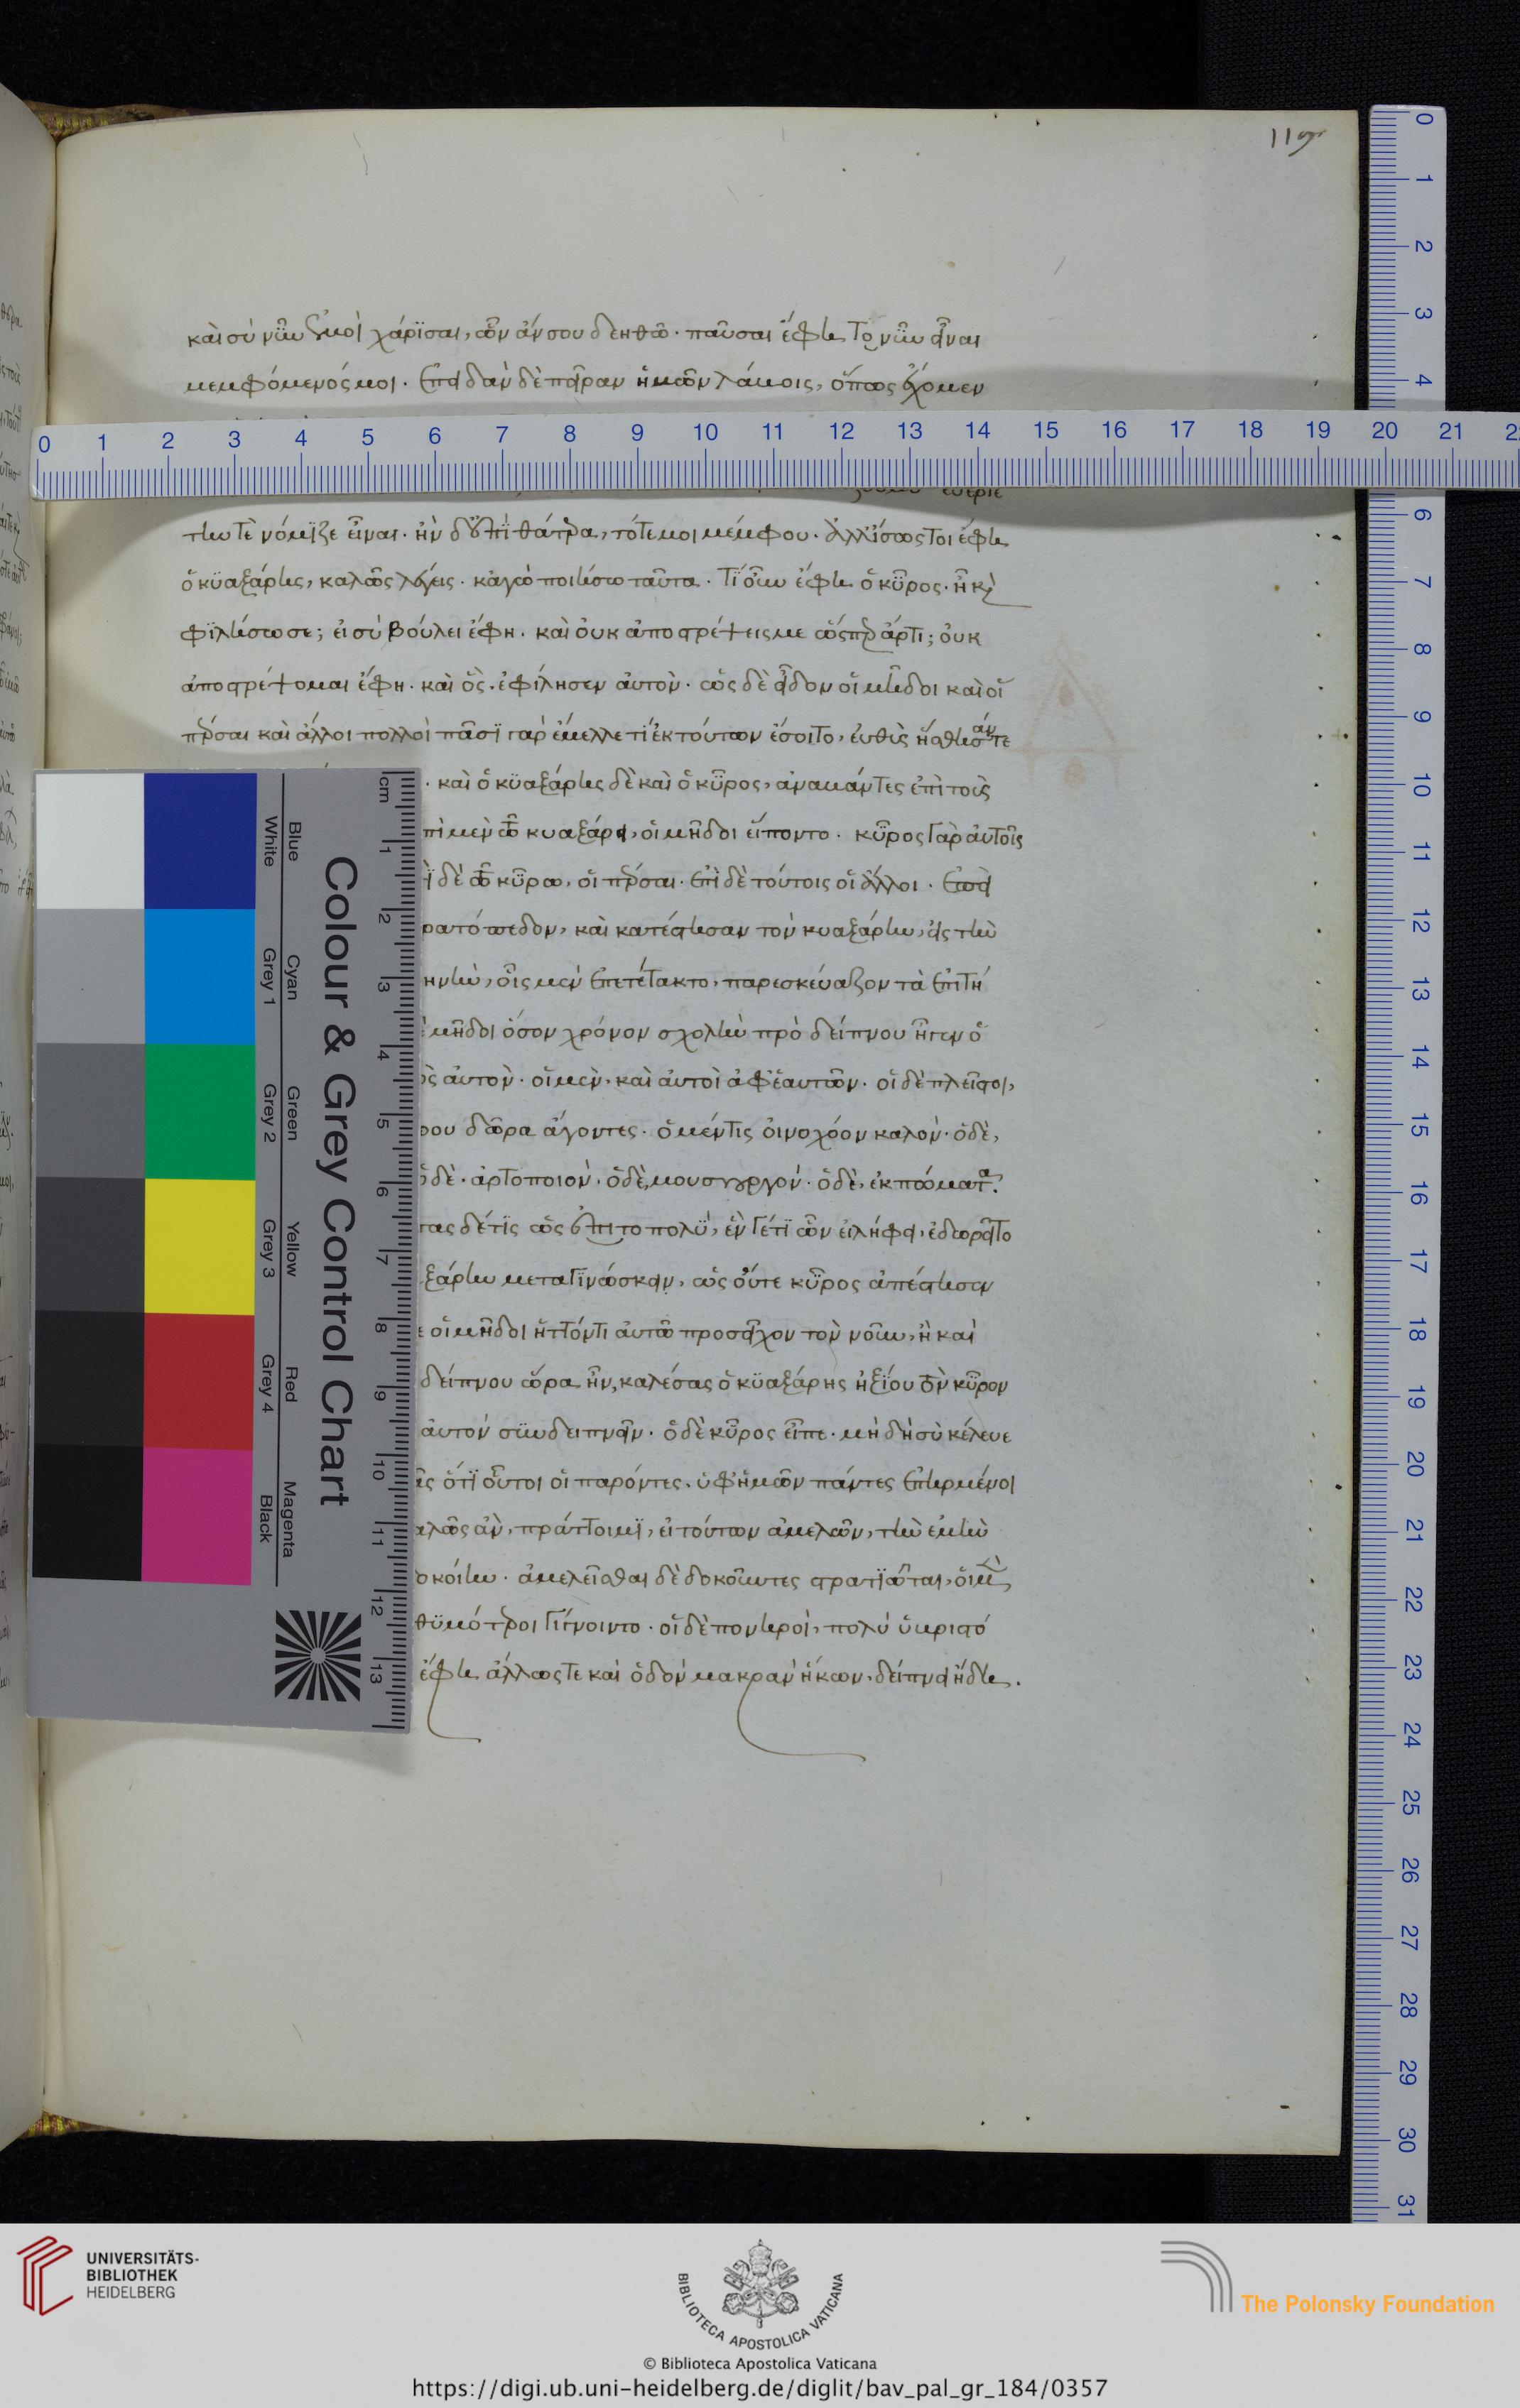 118
καὶ σὺ νῦν ἐμοὶ χάρϊσαι, ὧν ἄν σου δεηθῶ. παῦσαι ἔφη τὸ νῦν εἶναι
μεμφόμενός μοι. ἐπειδὰν δὲ πεῖραν ἡμῶν λάβοις, ὅπως ἔχομεν
0 1 2 3 4 5 6 7 8 9 10 11 12 13 14 15 16 17 18 19 20 21
εὐεργέ
την τὲ νόμϊζε εἶναι. ἢν δ' ἐπὶ θάτερα, τότε μοι μέμφου. ἀλλ' ἴσως τοι ἔφη
ὁ κϋαξάρης, καλῶς λέγεις. κἀγὼ ποιήσω ταῦτα. τί οὖν ἔφη ὁ κῦρος. ἦ καὶ
φϊλήσω σε; εἰ σὺ βούλει ἔφη. καὶ οὐκ ἀποστρέψεις με ὥσπερ ἄρτι; οὐκ
ἀποστρέψομαι ἔφη. καὶ ὃς. ἐφίλησεν αὐτὸν. ὡς δὲ εἶδον οἱ μῆδοι καὶ οἱ
πέρσαι καὶ ἄλλοι πολλοὶ πᾶσϊ γὰρ ἔμελλε τί ἐκ τούτων ἔσοιτο, εὐθὺς ἥσθησάν τε
. καὶ ὁ κϋαξάρης δὲ καὶ ὁ κῦρος, ἀναβάντες ἐπὶ τοὺς
πὶ μὲν τῶ κυαξάρει, οἱ μῆδοι εἵποντο. κῦρος γὰρ αὐτοῖς
ὶ δὲ τῶ κῦρω, οἱ πέρσαι. ἐπὶ δὲ τούτοις οἱ ἄλλοι. ἐπεὶ
ρατόπεδον, καὶ κατέστησαν τὸν κυαξάρην, εἰς τὴν
ηνὴν, οἷς μὲν ἐπετέτακτο, παρεσκεύαζον τὰ ἐπιτή
ὲ μῆδοι ὅσον χρόνον σχολὴν πρὸ δείπνου ἦγεν ὁ
ὸς αὐτὸν. οἱ μὲν. καὶ αὐτοὶ ἀφ' ἑαυτῶν. οἱ δὲ πλεῖστοι,
ρου δῶρα ἄγοντες. ὁ μέν τις οἰνοχόον καλὸν. ὁ δὲ,
ὁ δὲ. ἀρτοποιὸν. ὁ δὲ, μουσουργὸν. ὁ δὲ, ἐκπώματα.
πας δέ τϊς ὡς ἐπι το πολὺ, ἕν γέ τϊ ὧν εἰλήφει, ἐδωρεῖτο
ξάρην μεταγϊνώσκειν, ὡς οὔτε κῦρος ἀπέστησεν
ε οἱ μῆδοι ἧττόν τι αὐτῶ προσεῖχον τὸν νοῦν, ἢ καὶ
δείπνου ὥρα ἦν, καλέσας ὁ κϋαξάρης ἠξίου τὸν κῦρον
αὐτὸν συνδειπνεῖν. ὁ δὲ κῦρος εἶπε. μὴ δὴ σὺ κέλευε
ᾶς ὅτϊ οὗτοι οἱ παρόντες. ὑφ' ἡμῶν πάντες ἐπηρμένοι
αλῶς ἂν, πράττοιμϊ, εἰ τούτων ἀμελῶν, τὴν ἐμὴν
οκοίην. ἀμελεῖσθαι δὲ δοκοῦντες στρατϊῶται, οἱ μὲν
θϋμότεροι γίγνοιντο. οἱ δὲ πονηροὶ, πολὺ ὑβριστό
ἔφη ἄλλως τε καὶ ὁδὸν μακρὰν ἥκων, δείπνει ἤδη.
Colour & Grey Control Chart
Blue Cyan Green Yellow Red Magenta
White Grey 1 Grey 2 Grey 3 Grey 4 Black
cm 1 2 3 4 5 6 7 8 9 10 11 12 13
0 1 2 3 4 6 7 8 9 10 11 12 13 14 15 16 17 18 19 20 21 22 23 24 25 26 27 28 29 30 31
UNIVERSITÄTS-
BIBLIOTHEK
HEIDELBERG
BIBLIOTECA APOSTOLICA VATICANA
© Biblioteca Apostolica Vaticana
The Polonsky Foundation
https://digi.ub.uni-heidelberg.de/diglit/bav_pal_gr_184/0357